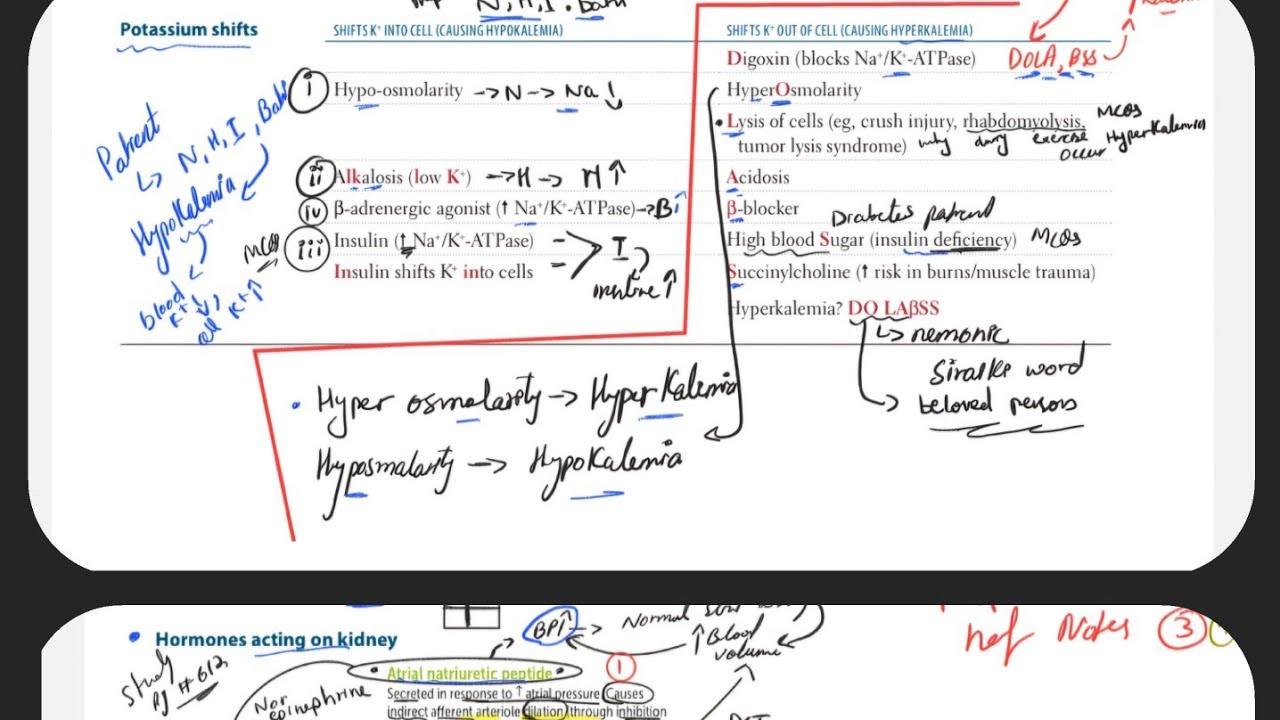 N, H, I . Bahi
Potassium shifts
SHIFTS K⁺ INTO CELL (CAUSING HYPOKALEMIA)
SHIFTS K⁺ OUT OF CELL (CAUSING HYPERKALEMIA)
Digoxin (blocks Na⁺/K⁺-ATPase) DOLA, BSS
i Hypo-osmolarity -> N -> Na ↓
HyperOsmolarity
• Lysis of cells (eg, crush injury, rhabdomyolysis, MCQS
tumor lysis syndrome) why during exercise HyperKalemia
occur
Patient
↳ N, H, I, Bahi
HypoKalemia
blood K⁺ ↓,
cell K⁺ ↑
ii Alkalosis (low K⁺) -> H -> H ↑
Acidosis
iv β-adrenergic agonist (↑ Na⁺/K⁺-ATPase) -> B
β-blocker Diabetes patient
MCQS iii Insulin (↑ Na⁺/K⁺-ATPase) -> I
High blood Sugar (insulin deficiency) MCQS
Insulin shifts K⁺ into cells
Succinylcholine (↑ risk in burns/muscle trauma)
Hyperkalemia? DO LAβSS
↳ nemonic
word
beloved persons
• Hyper osmolarity -> HyperKalemia
Hyposmalarity -> HypoKalemia
• Hormones acting on kidney
BP↑ -> Normal
↑ Blood
volume
Notes 3
Study
Pg # 612
Nor
epinephrine
• Atrial natriuretic peptide • 1
Secreted in response to ↑ atrial pressure Causes
indirect afferent arteriole dilation through inhibition